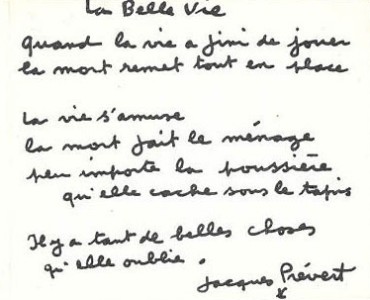 La Belle Vie
Quand la vie a fini de jouer
la mort remet tout en place
La vie s'amuse
la mort fait le ménage
peu importe la poussière
qu'elle cache sous le tapis
Il y a tant de belles choses
qu'elle oublie.
Jacques Prévert